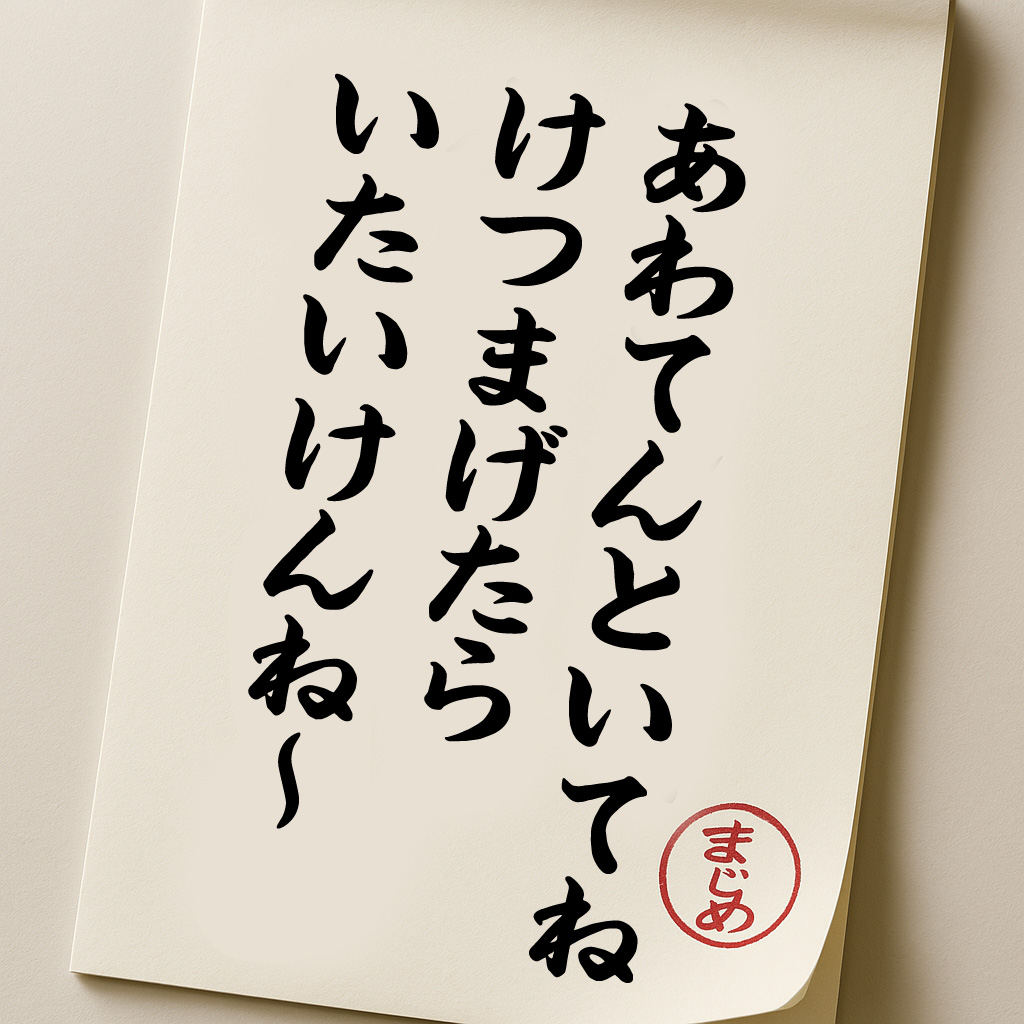 あわてんといてね
けつまげたら
いたいけんね〜
まじめ